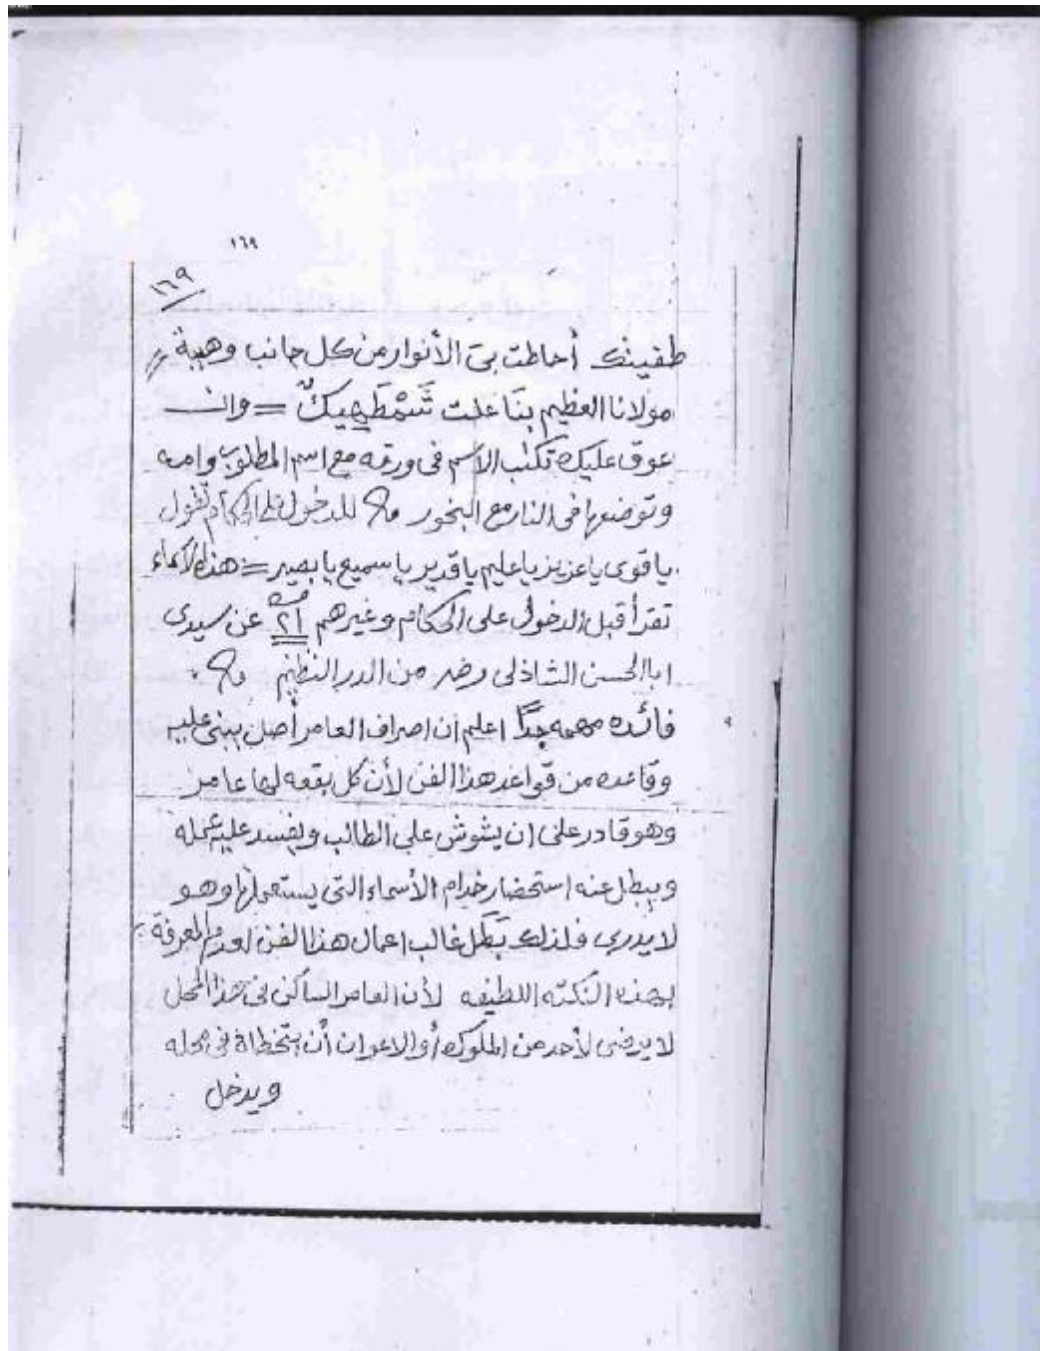 ١٦٩
١٦٩
أحاطت بي الأنوار من كل جانب وهيبة
مولانا العظيم بنا علت شَمْطَهِيكٌ = وان
عوق عليك تكتب الاسم فى ورقه مع اسم المطلوب وامه
وتوضعها فى النار مع البخور للدخول على الحكام تقول
ياقوى ياعزيز ياعليم ياقدير ياسميع يابصير = هذه الأسماء
تقرأ قبل الدخول على الحكام وغيرهم ٢١ عن سيدى
ابا الحسن الشاذلى رضى من الدر النظيم
فائده مهمه جداً اعلم ان اصراف العامر أصل يبنى عليه
وقاعده من قواعد هذا الفن لأن كل بقعه لها عامر
وهو قادر على ان يشوش على الطالب ويفسد عليه عمله
ويبطل عنه استحضار خدام الأسماء التى يستعملها وهو
لا يدرى فلذلك بَطَل غالب اعمال هذا الفن لعدم المعرفة
بهذه النكته اللطيفه لأن العامر الساكن فى هذا المحل
لا يرضى لأحد من الملوك أو الاعوان أن يتخطاه فى محله
ويدخل